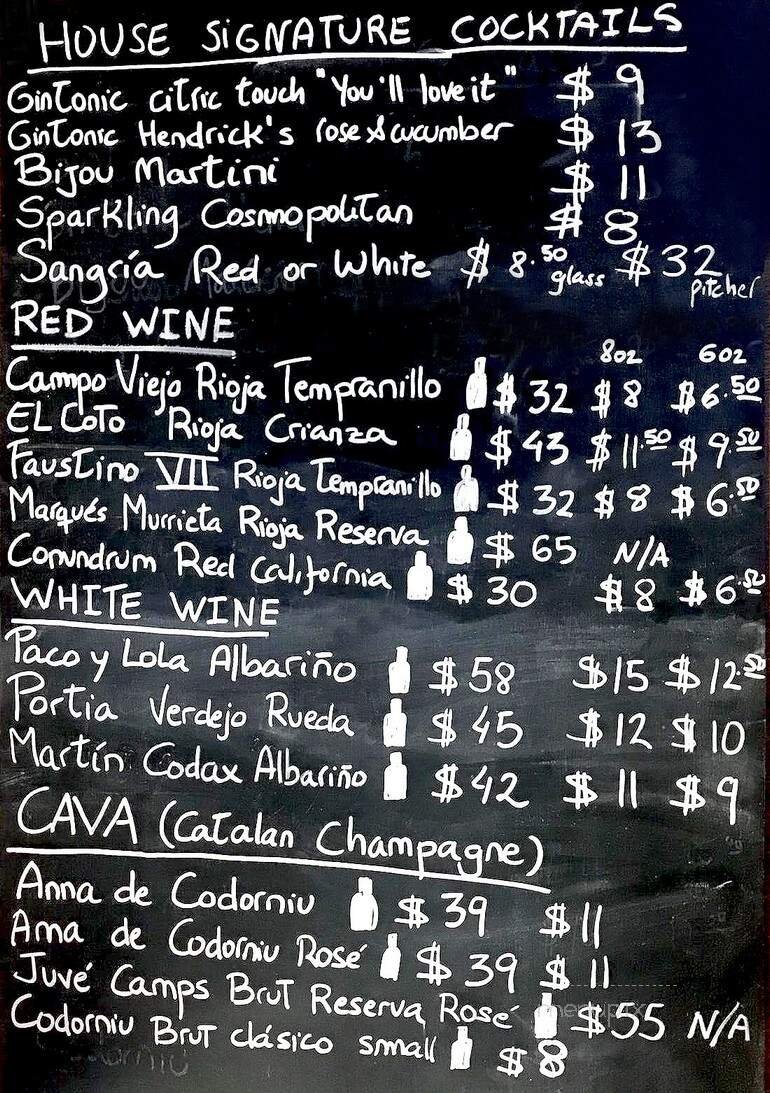 HOUSE SIGNATURE COCKTAILS
GinTonic citric touch "You'll love it" $ 9
GinTonic Hendrick's rose & cucumber $ 13
Bijou Martini $ 11
Sparkling Cosmopolitan $ 8
Sangría Red or White $ 8.50 glass $ 32 pitcher
RED WINE 8oz 6oz
Campo Viejo Rioja Tempranillo $ 32 $ 8 $ 6.50
EL Coto Rioja Crianza $ 43 $ 11.50 $ 9.50
Faustino VII Rioja Tempranillo $ 32 $ 8 $ 6.50
Marqués Murrieta Rioja Reserva $ 65 N/A
Conundrum Red California $ 30 $ 8 $ 6.50
WHITE WINE
Paco y Lola Albariño $ 58 $ 15 $ 12.50
Portia Verdejo Rueda $ 45 $ 12 $ 10
Martín Codax Albariño $ 42 $ 11 $ 9
CAVA (Catalan Champagne)
Anna de Codorniu $ 39 $ 11
Anna de Codorniu Rosé $ 39 $ 11
Juvé Camps Brut Reserva Rosé $ 55 N/A
Codorniu Brut clásico small $ 8